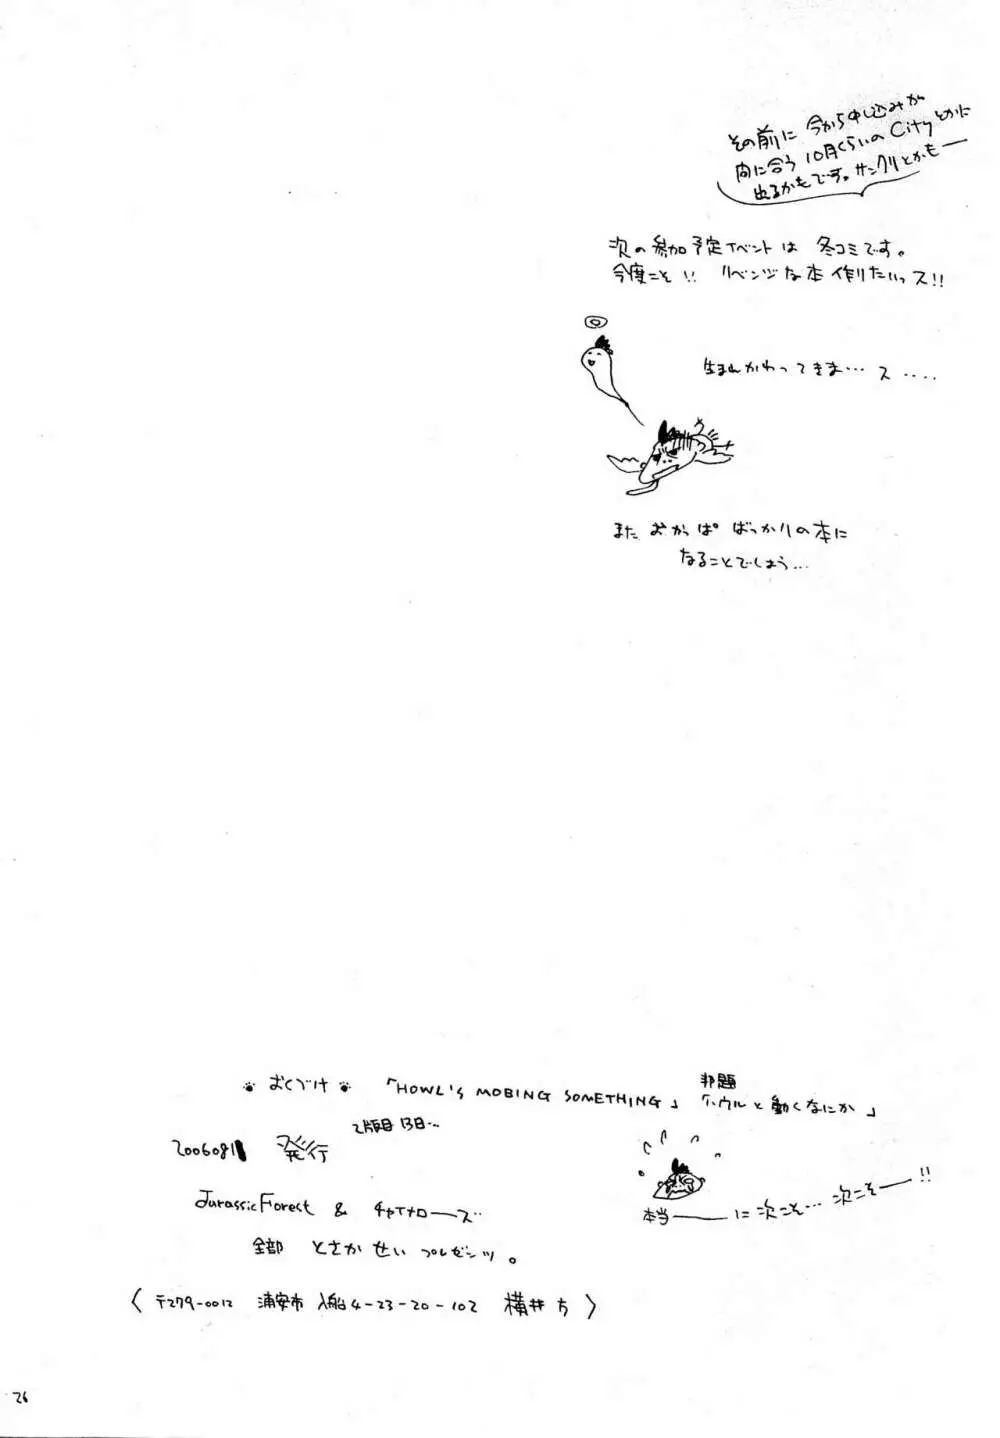 その前に 今から申し込みが
間に合う 10月くらいの Cityとかに
出るかもです。サンクリとかもー
次の参加予定イベントは 冬コミです。
今度こそ!! リベンジな本作りたいっス!!
生まれかわってきま… ス ‥‥
また おかっぱ ばっかりの本に
なることでしょう…
おくづけ 「HOWL'S MOBING SOMETHING」 邦題 「ハウルと動くなにか」
2版目 13日…
2006081 発行
本当――に 次こそ… 次こそ――!!
Jurassic Forest & チャイナローズ
全部 とさか せい プレゼンツ。
〈 〒279-0012 浦安市 入船4-23-20-102 横井方 〉
26